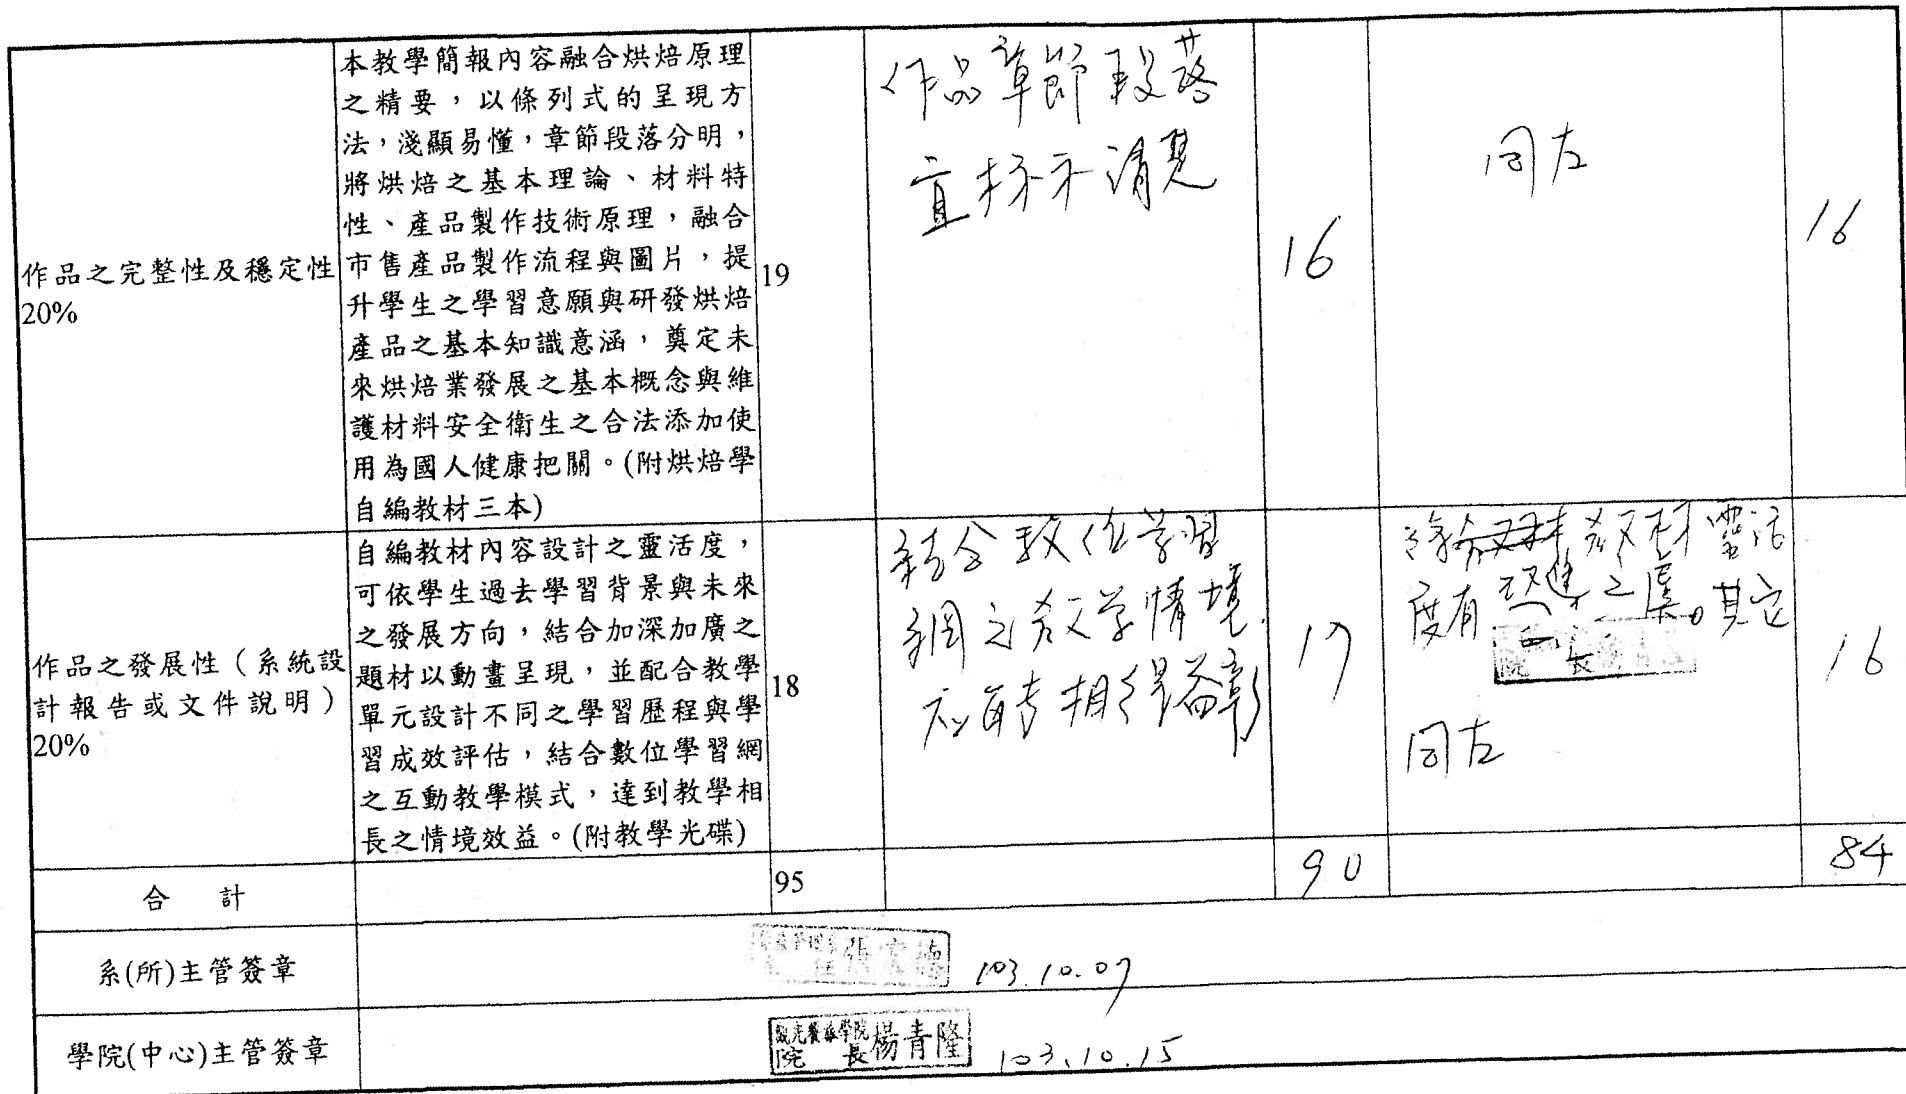 本教學簡報內容融合烘焙原理
之精要，以條列式的呈現方
法，淺顯易懂，章節段落分明，
將烘焙之基本理論、材料特
性、產品製作技術原理，融合
市售產品製作流程與圖片，提
升學生之學習意願與研發烘焙
產品之基本知識意涵，奠定未
來烘焙業發展之基本概念與維
護材料安全衛生之合法添加使
用為國人健康把關。(附烘焙學
自編教材三本)
作品之完整性及穩定性
20%
19
作品章節段落
宜標示清楚
16
同左
16
自編教材內容設計之靈活度，
可依學生過去學習背景與未來
之發展方向，結合加深加廣之
題材以動畫呈現，並配合教學
單元設計不同之學習歷程與學
習成效評估，結合數位學習網
之互動教學模式，達到教學相
長之情境效益。(附教學光碟)
作品之發展性（系統設
計報告或文件說明）
20%
18
結合數位学習
網之教学情境
相得益彰
17
教材靈活
度有改進之處。其它
同左
16
合 計
95
90
84
系(所)主管簽章
103.10.07
學院(中心)主管簽章
觀光餐旅學院
院 長 楊青隆
103.10.15